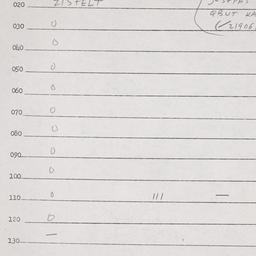 020 ZISTELT
030 0 QBUT KA
(✓21906
040 0
050 0
060 0
070 0
080 0
090 0
100 0
110 0 III —
120 0
130 —